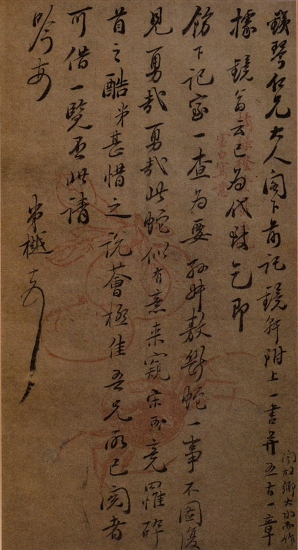 鐵琴仁兄大人閣下前託鏡軒附上一書并五古一章
大水而作
據鏡翁云已為代附乞即
飭下記室一查為要孫叔敖斷蛇一事不圖復
見勇哉勇哉此蛇似有意來窺竟罹碎
首之酷弟甚惜之說薈極佳吾兄所已閱者
可借一覽否此請
吟安
弟樾